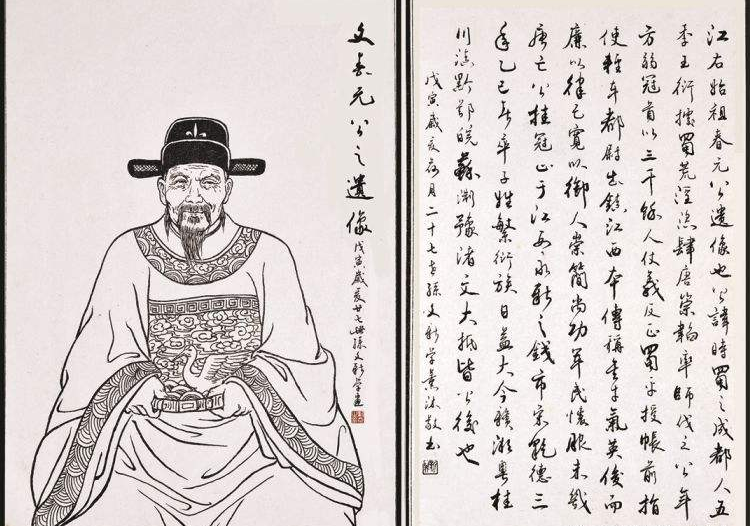 江右始祖春元公遺像也公諱時蜀之成都人五
季王衍據蜀荒淫恣肆唐崇韜率師伐之公年
方弱冠首以三千餘人仗義反正蜀平授帳前指
使輕車都尉出鎮江西本傳稱其才氣英俊而
廉以律己寬以御人崇簡尚功軍民懷服未幾
唐亡公挂冠止于江西永新之錢市宋乾德三
年乙巳春卒子姓繁衍族日益大今贛湘粵桂
川滇黔鄂皖蘇浙豫諸文大抵皆公後也
戊寅歲夏荷月二十七世孫文新学薰沐敬书
文春元公之遺像
戊寅歲夏廿七世孫文新学畫